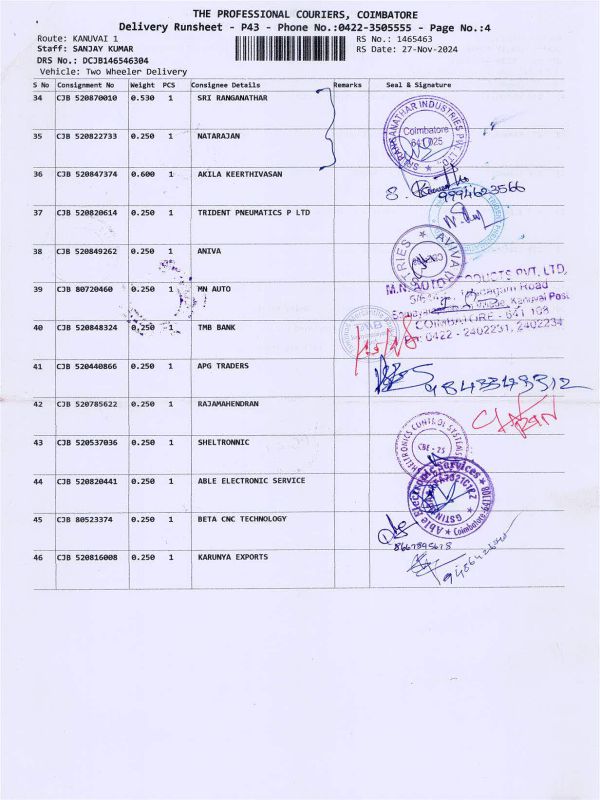 THE PROFESSIONAL COURIERS, COIMBATORE
Delivery Runsheet - P43 - Phone No.:0422-3505555 - Page No.:4
Route: KANUVAI 1
RS No.: 1465463
Staff: SANJAY KUMAR
RS Date: 27-Nov-2024
DRS No.: DCJB146546304
Vehicle: Two Wheeler Delivery
S No Consignment No Weight PCS Consignee Details Remarks Seal & Signature
34 CJB 520870010 0.530 1 SRI RANGANATHAR
SRI RANGANATHAR INDUSTRIES PVT. LTD.
Coimbatore
641 025
35 CJB 520822733 0.250 1 NATARAJAN
36 CJB 520847374 0.600 1 AKILA KEERTHIVASAN
9994603566
37 CJB 520820614 0.250 1 TRIDENT PNEUMATICS P LTD
38 CJB 520849262 0.250 1 ANIVA
39 CJB 80720460 0.250 1 MN AUTO
M.N. AUTO PRODUCTS PVT. LTD,
Road
Kanuvai Post
COIMBATORE - 641 108
0422 - 2402231, 2402234
40 CJB 520848324 0.250 1 TMB BANK
41 CJB 520440866 0.250 1 APG TRADERS
9843349312
42 CJB 520785622 0.250 1 RAJAMAHENDRAN
43 CJB 520537036 0.250 1 SHELTRONNIC
SHELTRONICS CONTROL SYSTEMS
CBE - 25
44 CJB 520820441 0.250 1 ABLE ELECTRONIC SERVICE
Able Electronic Services
Coimbatore
45 CJB 80523374 0.250 1 BETA CNC TECHNOLOGY
46 CJB 520816008 0.250 1 KARUNYA EXPORTS